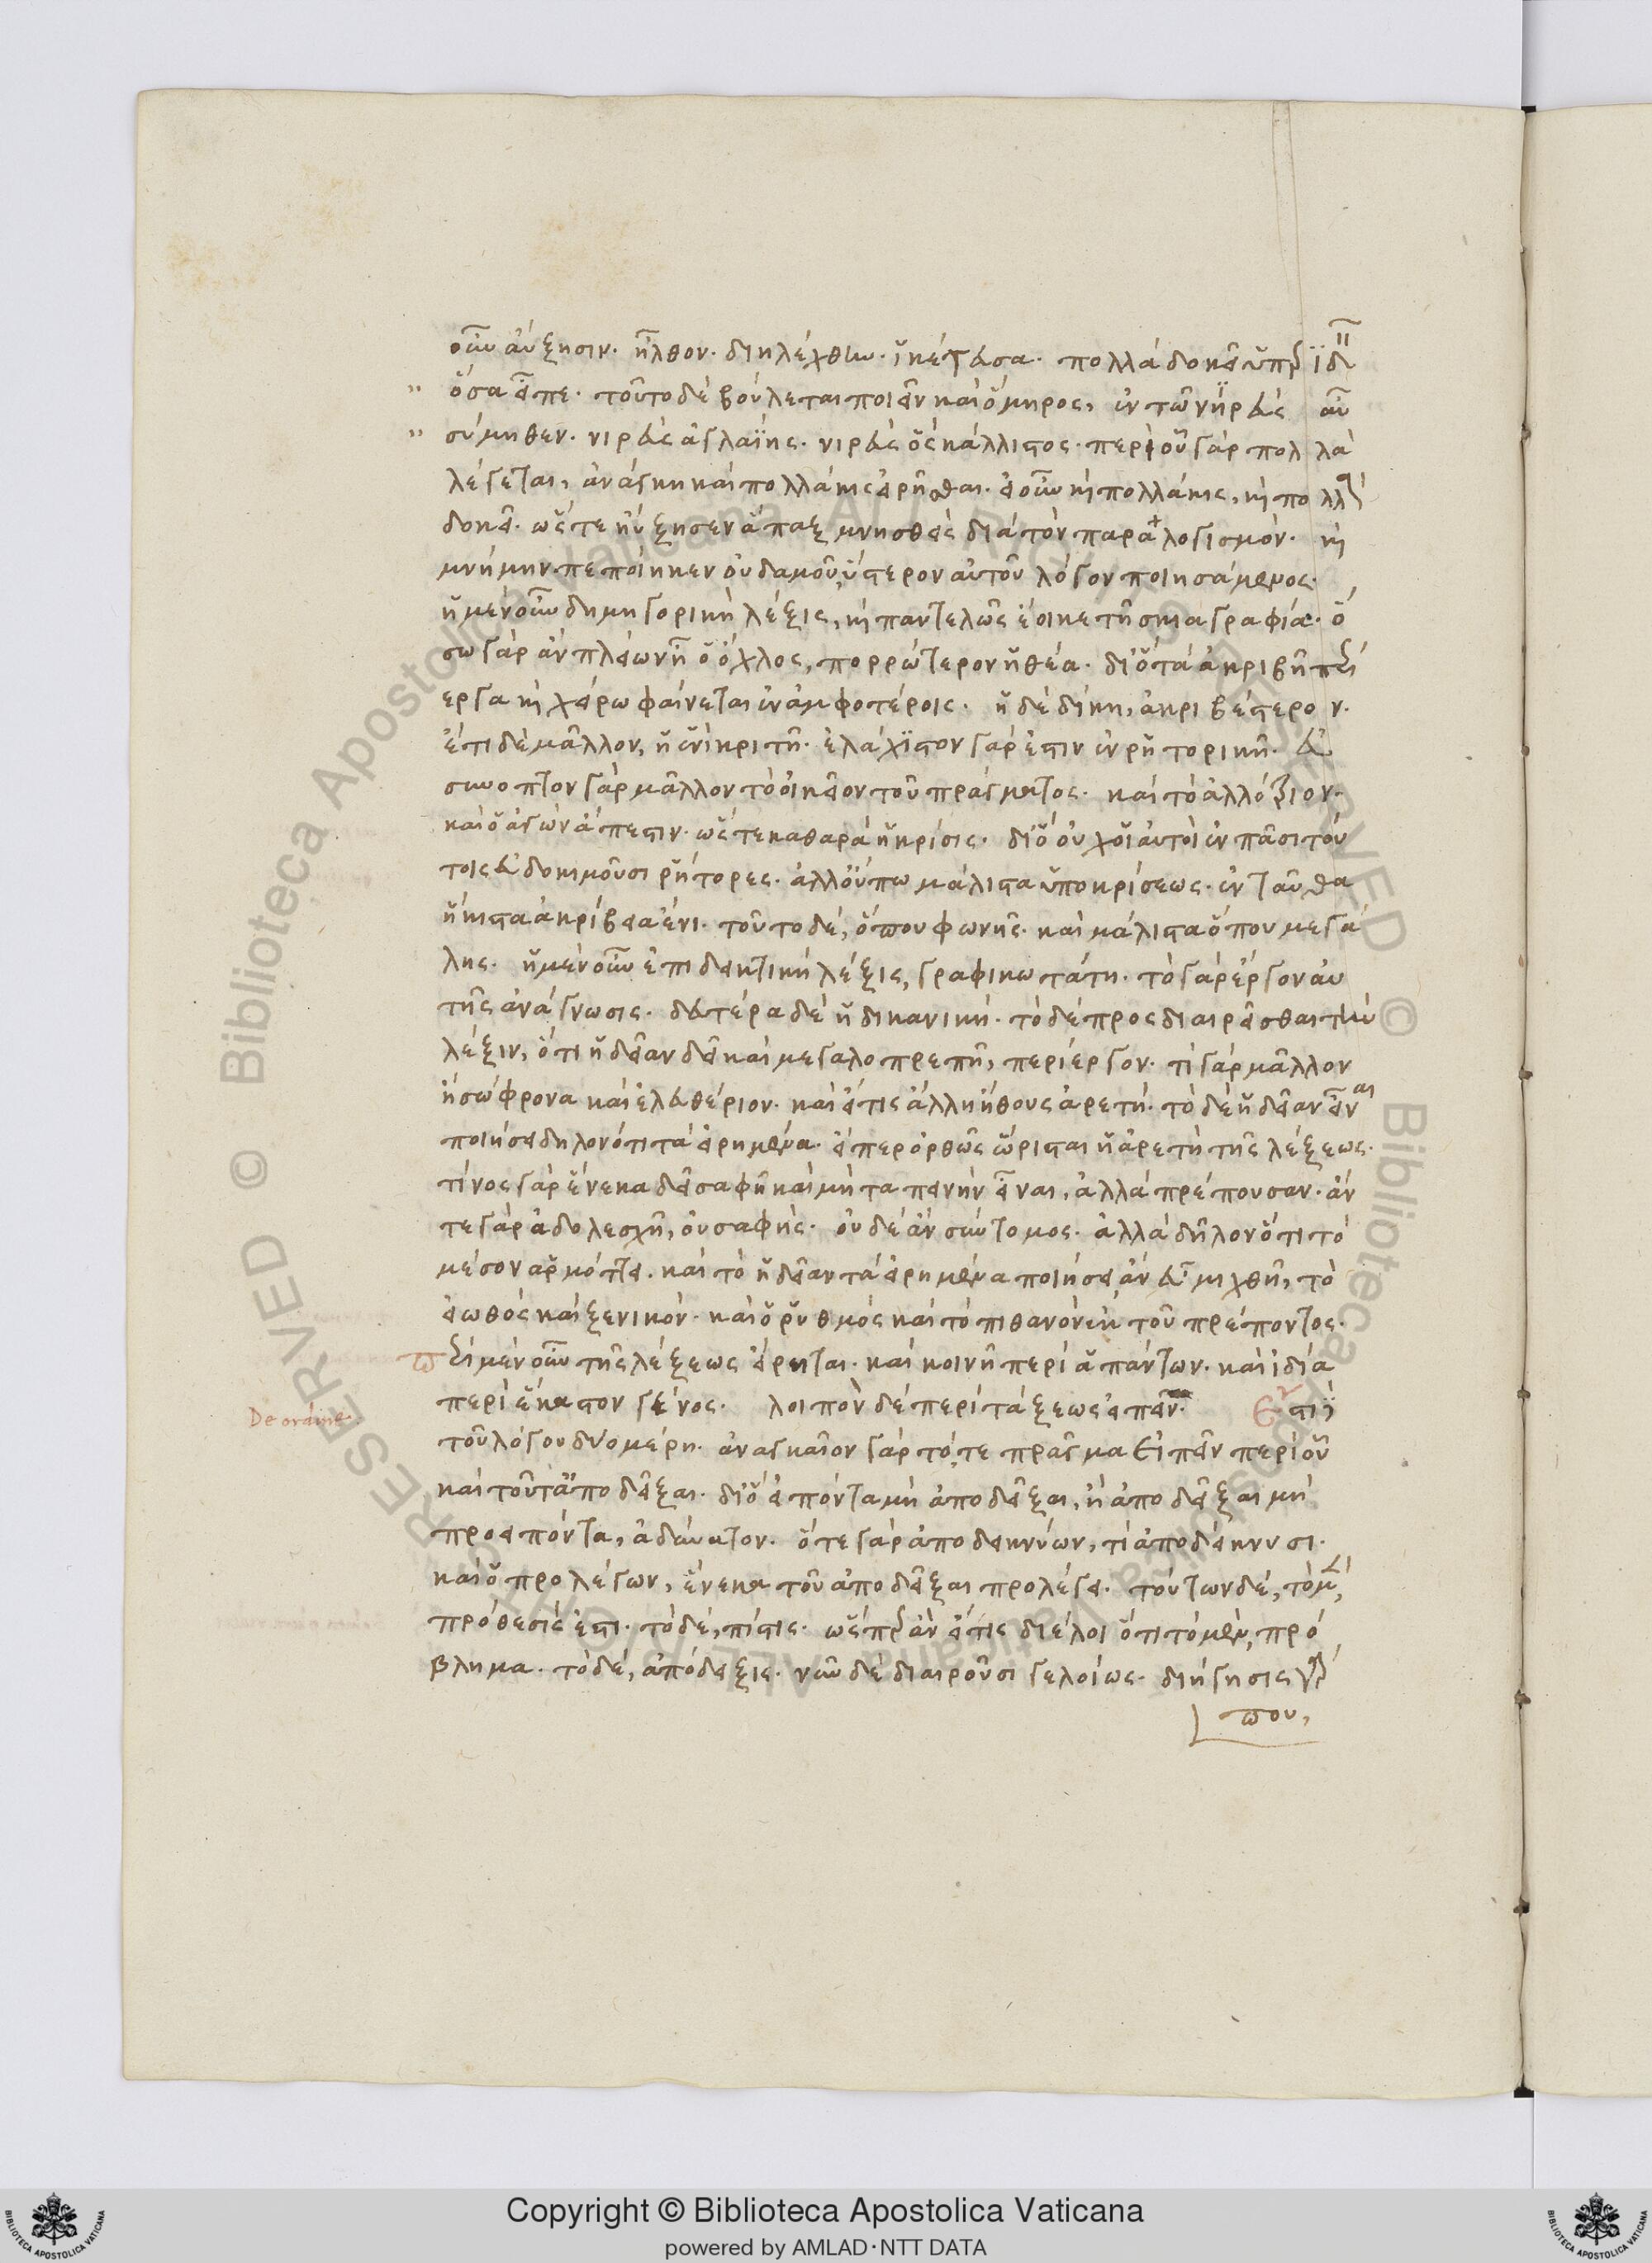 οὖν αὔξησιν. ἦλθον. διηλέχθην. ἱκέτευσα. πολλὰ δοκεῖ ὑπερϊδεῖν
ὅσα εἶπε. τοῦτο δὲ βούλεται ποιεῖν καὶ ὅμηρος, ἐν τῶ νηρεὺς αὖ
σύμηθεν. νιρεὺς ἀγλαΐης. νιρεὺς ὃς κάλλιστος. περὶ οὗ γὰρ πολλὰ
λέγεται, ἀνάγκη καὶ πολλάκις εἰρῆσθαι. εἰ οὖν κὶ πολλάκις, κὶ πολλὰ
δοκεῖ. ὥστε ηὔξησεν ἅπαξ μνησθεὶς διὰ τὸν παραλογισμόν. κὶ
μνήμην πεποίηκεν οὐδαμοῦ ὕστερον αὐτοῦ λόγον ποιησάμενος.
ἡ μὲν οὖν δημηγορικὴ λέξις, κὶ παντελῶς ἔοικε τῆ σκιαγραφία. ὅ
σω γὰρ ἂν πλείων ἦ ὁ ὄχλος, πορρώτερον ἡ θέα. διὸ τὰ ἀκριβῆ περί
εργα κὶ χείρω φαίνεται ἐν ἀμφοτέροις. ἡ δὲ δίκη, ἀκριβέστερον.
ἔτι δὲ μᾶλλον, ἡ ἑνὶ κριτῆ. ἐλάχιστον γάρ ἐστιν ἐν ρητορικῆ. εὐ
σύνοπτον γὰρ μᾶλλον τὸ οἰκεῖον τοῦ πράγματος. καὶ τὸ ἀλλότριον.
καὶ ὁ ἀγὼν ἄπεστιν. ὥστε καθαρὰ ἡ κρίσις. διὸ οὐχ οἱ αὐτοὶ ἐν πᾶσι τού
τοις εὐδοκιμοῦσι ρήτορες. ἀλλ' ὅπω μάλιστα ὑποκρίσεως. ἐνταῦθα
ἥκιστα ἀκρίβεια ἔνι. τοῦτο δέ, ὅπου φωνῆς. καὶ μάλιστα ὅπου μεγά
λης. ἡ μὲν οὖν ἐπιδεικτικὴ λέξις, γραφικωτάτη. τὸ γὰρ ἔργον αὐ
τῆς ἀνάγνωσις. δευτέρα δὲ ἡ δικανική. τὸ δὲ προσδιαιρεῖσθαι τὴν
λέξιν, ὅτι ἡδεῖαν δεῖ καὶ μεγαλοπρεπῆ, περίεργον. τί γὰρ μᾶλλον
ἢ σώφρονα καὶ ἐλευθέριον. καὶ εἴ τις ἄλλη ἤθους ἀρετή. τὸ δὲ ἡδεῖαν εἶναι
ποιήσει δηλονότι τὰ εἰρημένα. εἴπερ ὀρθῶς ὥρισται ἡ ἀρετὴ τῆς λέξεως.
τίνος γὰρ ἕνεκα δεῖ σαφῆ καὶ μὴ ταπεινὴν εἶναι, ἀλλὰ πρέπουσαν. ἄν
τε γὰρ ἀδολεσχῆ, οὐ σαφής. οὐδὲ ἂν σύντομος. ἀλλὰ δῆλον ὅτι τὸ
μέσον ἁρμόττει. καὶ τὸ ἡδεῖαν τὰ εἰρημένα ποιήσει, ἂν εὖ μιχθῆ, τὸ
εἰωθὸς καὶ ξενικόν. καὶ ὁ ρυθμὸς καὶ τὸ πιθανὸν ἐκ τοῦ πρέποντος.
περὶ μὲν οὖν τῆς λέξεως εἴρηται. καὶ κοινῆ περὶ ἁπάντων. καὶ ἰδία
περὶ ἕκαστον γένος. λοιπὸν δὲ περὶ τάξεως εἰπεῖν. Ἔστι
De ordine.
τοῦ λόγου δύο μέρη. ἀναγκαῖον γὰρ τό, τε πρᾶγμα εἰπεῖν περὶ οὗ
καὶ τοῦτ' ἀποδεῖξαι. διὸ εἰπόντα μὴ ἀποδεῖξαι, ἢ ἀποδεῖξαι μὴ
προειπόντα, ἀδύνατον. ὅ τε γὰρ ἀποδεικνύων, τὶ ἀποδείκνυσι.
καὶ ὁ προλέγων, ἕνεκα τοῦ ἀποδεῖξαι προλέγει. τούτων δέ, τὸ μὲν,
πρόθεσίς ἐστι. τὸ δέ, πίστις. ὥσπερ ἂν εἴ τις διέλοι ὅτι τὸ μὲν, πρό
βλημα. τὸ δέ, ἀπόδειξις. νῦν δὲ διαιροῦσι γελοίως. διήγησις γάρ
που,